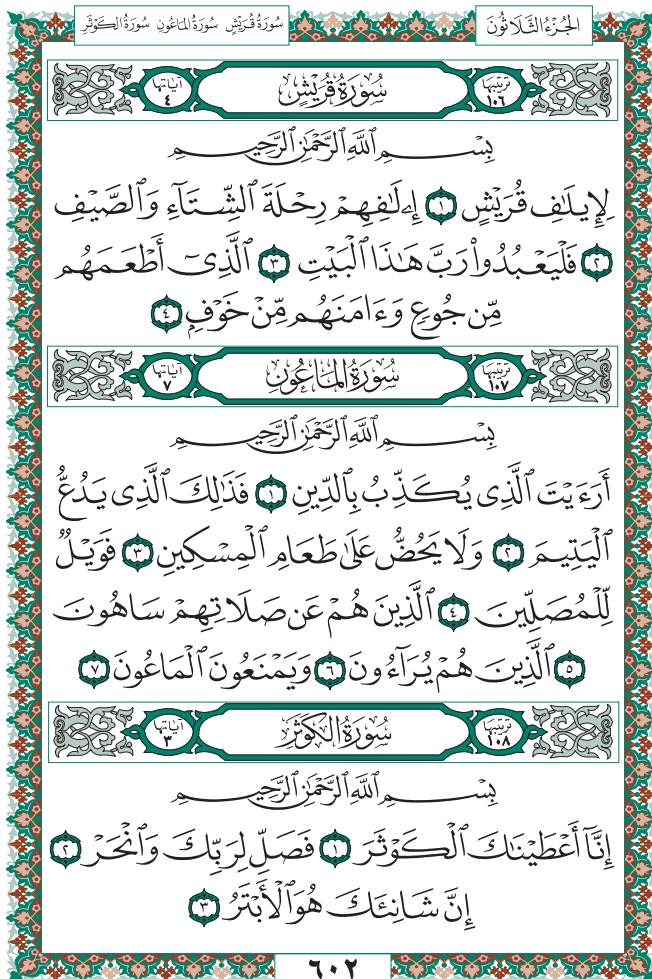 الجُزْءُ الثَّلَاثُونَ
سُورَةُ قُرَيْشٍ سُورَةُ المَاعُونِ سُورَةُ الكَوْثَرِ
ترتيبها ١٠٦ سُورَةُ قُرَيْشٍ آياتها ٤
بِسْمِ ٱللَّهِ ٱلرَّحْمَٰنِ ٱلرَّحِيمِ
لِإِيلَٰفِ قُرَيْشٍ ١ إِۦلَٰفِهِمْ رِحْلَةَ ٱلشِّتَآءِ وَٱلصَّيْفِ
٢ فَلْيَعْبُدُوا۟ رَبَّ هَٰذَا ٱلْبَيْتِ ٣ ٱلَّذِىٓ أَطْعَمَهُم
مِّن جُوعٍ وَءَامَنَهُم مِّنْ خَوْفٍۭ ٤
ترتيبها ١٠٧ سُورَةُ المَاعُونِ آياتها ٧
بِسْمِ ٱللَّهِ ٱلرَّحْمَٰنِ ٱلرَّحِيمِ
أَرَءَيْتَ ٱلَّذِى يُكَذِّبُ بِٱلدِّينِ ١ فَذَٰلِكَ ٱلَّذِى يَدُعُّ
ٱلْيَتِيمَ ٢ وَلَا يَحُضُّ عَلَىٰ طَعَامِ ٱلْمِسْكِينِ ٣ فَوَيْلٌ
لِّلْمُصَلِّينَ ٤ ٱلَّذِينَ هُمْ عَن صَلَاتِهِمْ سَاهُونَ
٥ ٱلَّذِينَ هُمْ يُرَآءُونَ ٦ وَيَمْنَعُونَ ٱلْمَاعُونَ ٧
ترتيبها ١٠٨ سُورَةُ الكَوْثَرِ آياتها ٣
بِسْمِ ٱللَّهِ ٱلرَّحْمَٰنِ ٱلرَّحِيمِ
إِنَّآ أَعْطَيْنَٰكَ ٱلْكَوْثَرَ ١ فَصَلِّ لِرَبِّكَ وَٱنْحَرْ ٢
إِنَّ شَانِئَكَ هُوَ ٱلْأَبْتَرُ ٣
٦٠٢